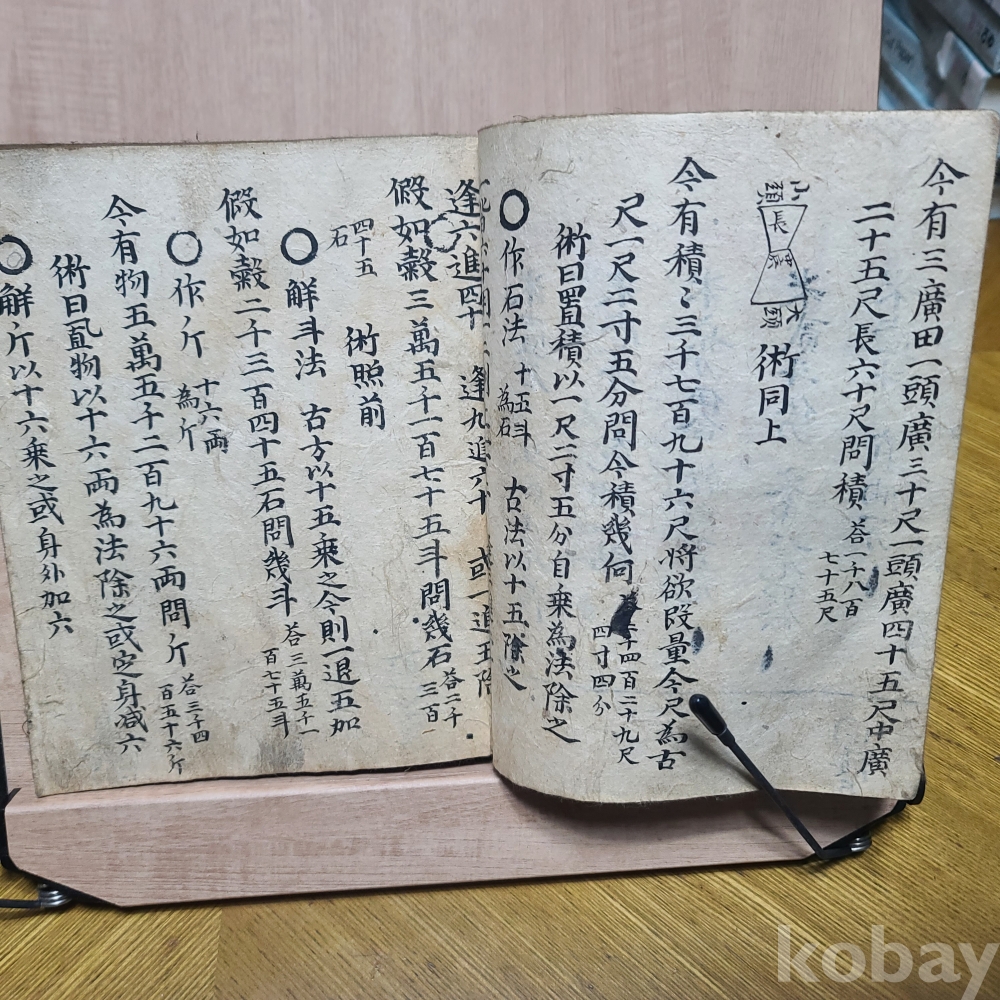 今有三廣田一頭廣三十尺一頭廣四十五尺中廣
二十五尺長六十尺問積 答一千八百
七十五尺
小頭 長 中廣 大頭
術同上
今有積〻三千七百九十六尺將欲改量今尺為古
尺一尺二寸五分問今積幾何 二千四百二十九尺
四寸四分
術曰置積以一尺二寸五分自乘為法除之
○作石法 十五斗為石 古法以十五除之
逢六進四十 逢九進六十 或一進五除
假如糓三萬五千一百七十五斗問幾石 答二千三百
四十五石 術照前
○解斗法 古方以十五乘之今則一退五加
假如糓二千三百四十五石問幾斗 答三萬五千一
百七十五斗
○作斤 十六兩為斤
今有物五萬五千二百九十六兩問斤 答三千四
百五十六斤
術曰置物以十六兩為法除之或定身减六
○解斤以十六乘之或身外加六
kobay